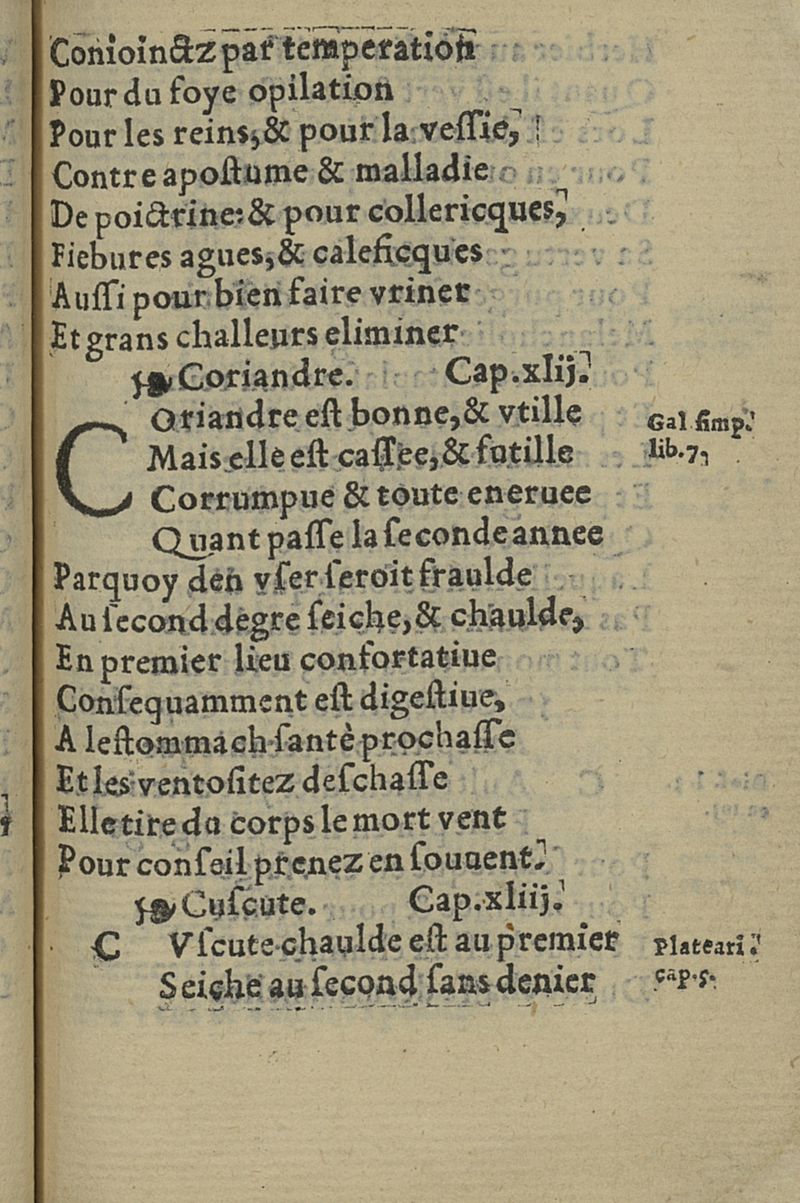 Conioinctz par temperation
Pour du foye opilation
Pour les reins, & pour la veſſie,
Contre apoſtume & malladie
De poictrine: & pour collericques,
Fiebures agues, & caleficques
Auſſi pour bien faire vriner
Et grans challeurs eliminer
Coriandre. Cap.xlij.
Coriandre eſt bonne, & vtille
Gal ſimp.
Mais elle eſt caſſee, & futille
lib.7,
Corrumpue & toute eneruee
Quant paſſe la ſeconde annee
Parquoy den vſer ſeroit fraulde
Au ſecond degre ſeiche, & chaulde,
En premier lieu confortatiue
Conſequamment eſt digeſtiue,
A leſtommach ſantè prochaſſe
Et les ventoſitez deſchaſſe
Elle tire du corps le mort vent
Pour conſeil prenez en ſouuent.
Cuſcute. Cap.xliij.
C Vſcute chaulde eſt au premier
Plateari.
Seiche au ſecond ſans denier
cap.5.